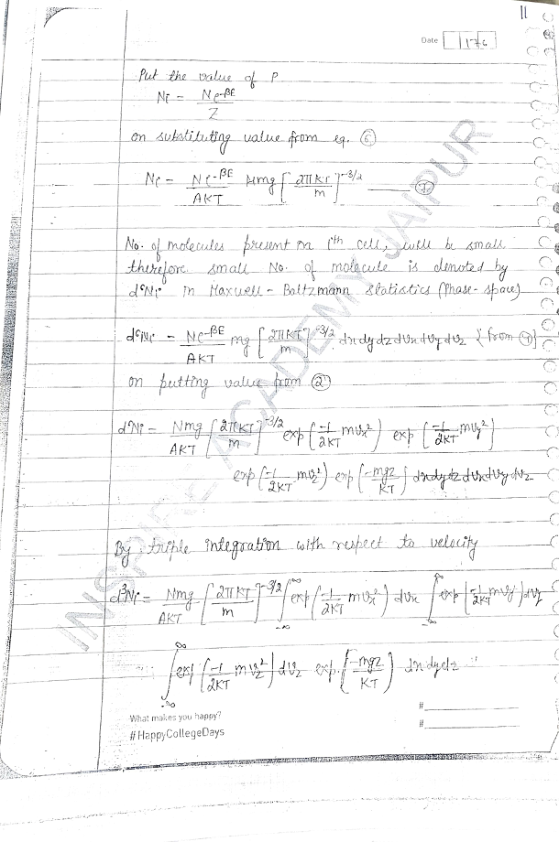 11
Date 176
Put the value of P
Ni = Ne^-βE / Z
on substituting value from eq. ⑥
Ni = Ne^-βE / AKT mg [2πKT / m]^-3/2 ——— ⑦
No. of molecules present in ith cell, will be small
therefore small No. of molecule is denoted by
d⁶Ni in Maxwell - Boltzmann statistics (Phase-space)
d⁶Ni = Ne^-βE / AKT mg [2πKT / m]^-3/2 dx dy dz dvx dvy dvz {from ⑦}
on putting value from ②
d⁶Ni = Nmg / AKT [2πKT / m]^-3/2 exp(-1/2KT mvx²) exp(-1/2KT mvy²)
exp(-1/2KT mvz²) exp(-mgz / KT) dx dy dz dvx dvy dvz
By triple integration with respect to velocity
d³Ni = Nmg / AKT [2πKT / m]^-3/2 ∫-∞^∞ exp(-1/2KT mvx²) dvx ∫-∞^∞ exp(-1/2KT mvy²) dvy
∫-∞^∞ exp(-1/2KT mvz²) dvz exp(-mgz / KT) dx dy dz
What makes you happy?
#HappyCollegeDays
#
#
INSPIRE ACADEMY JAIPUR